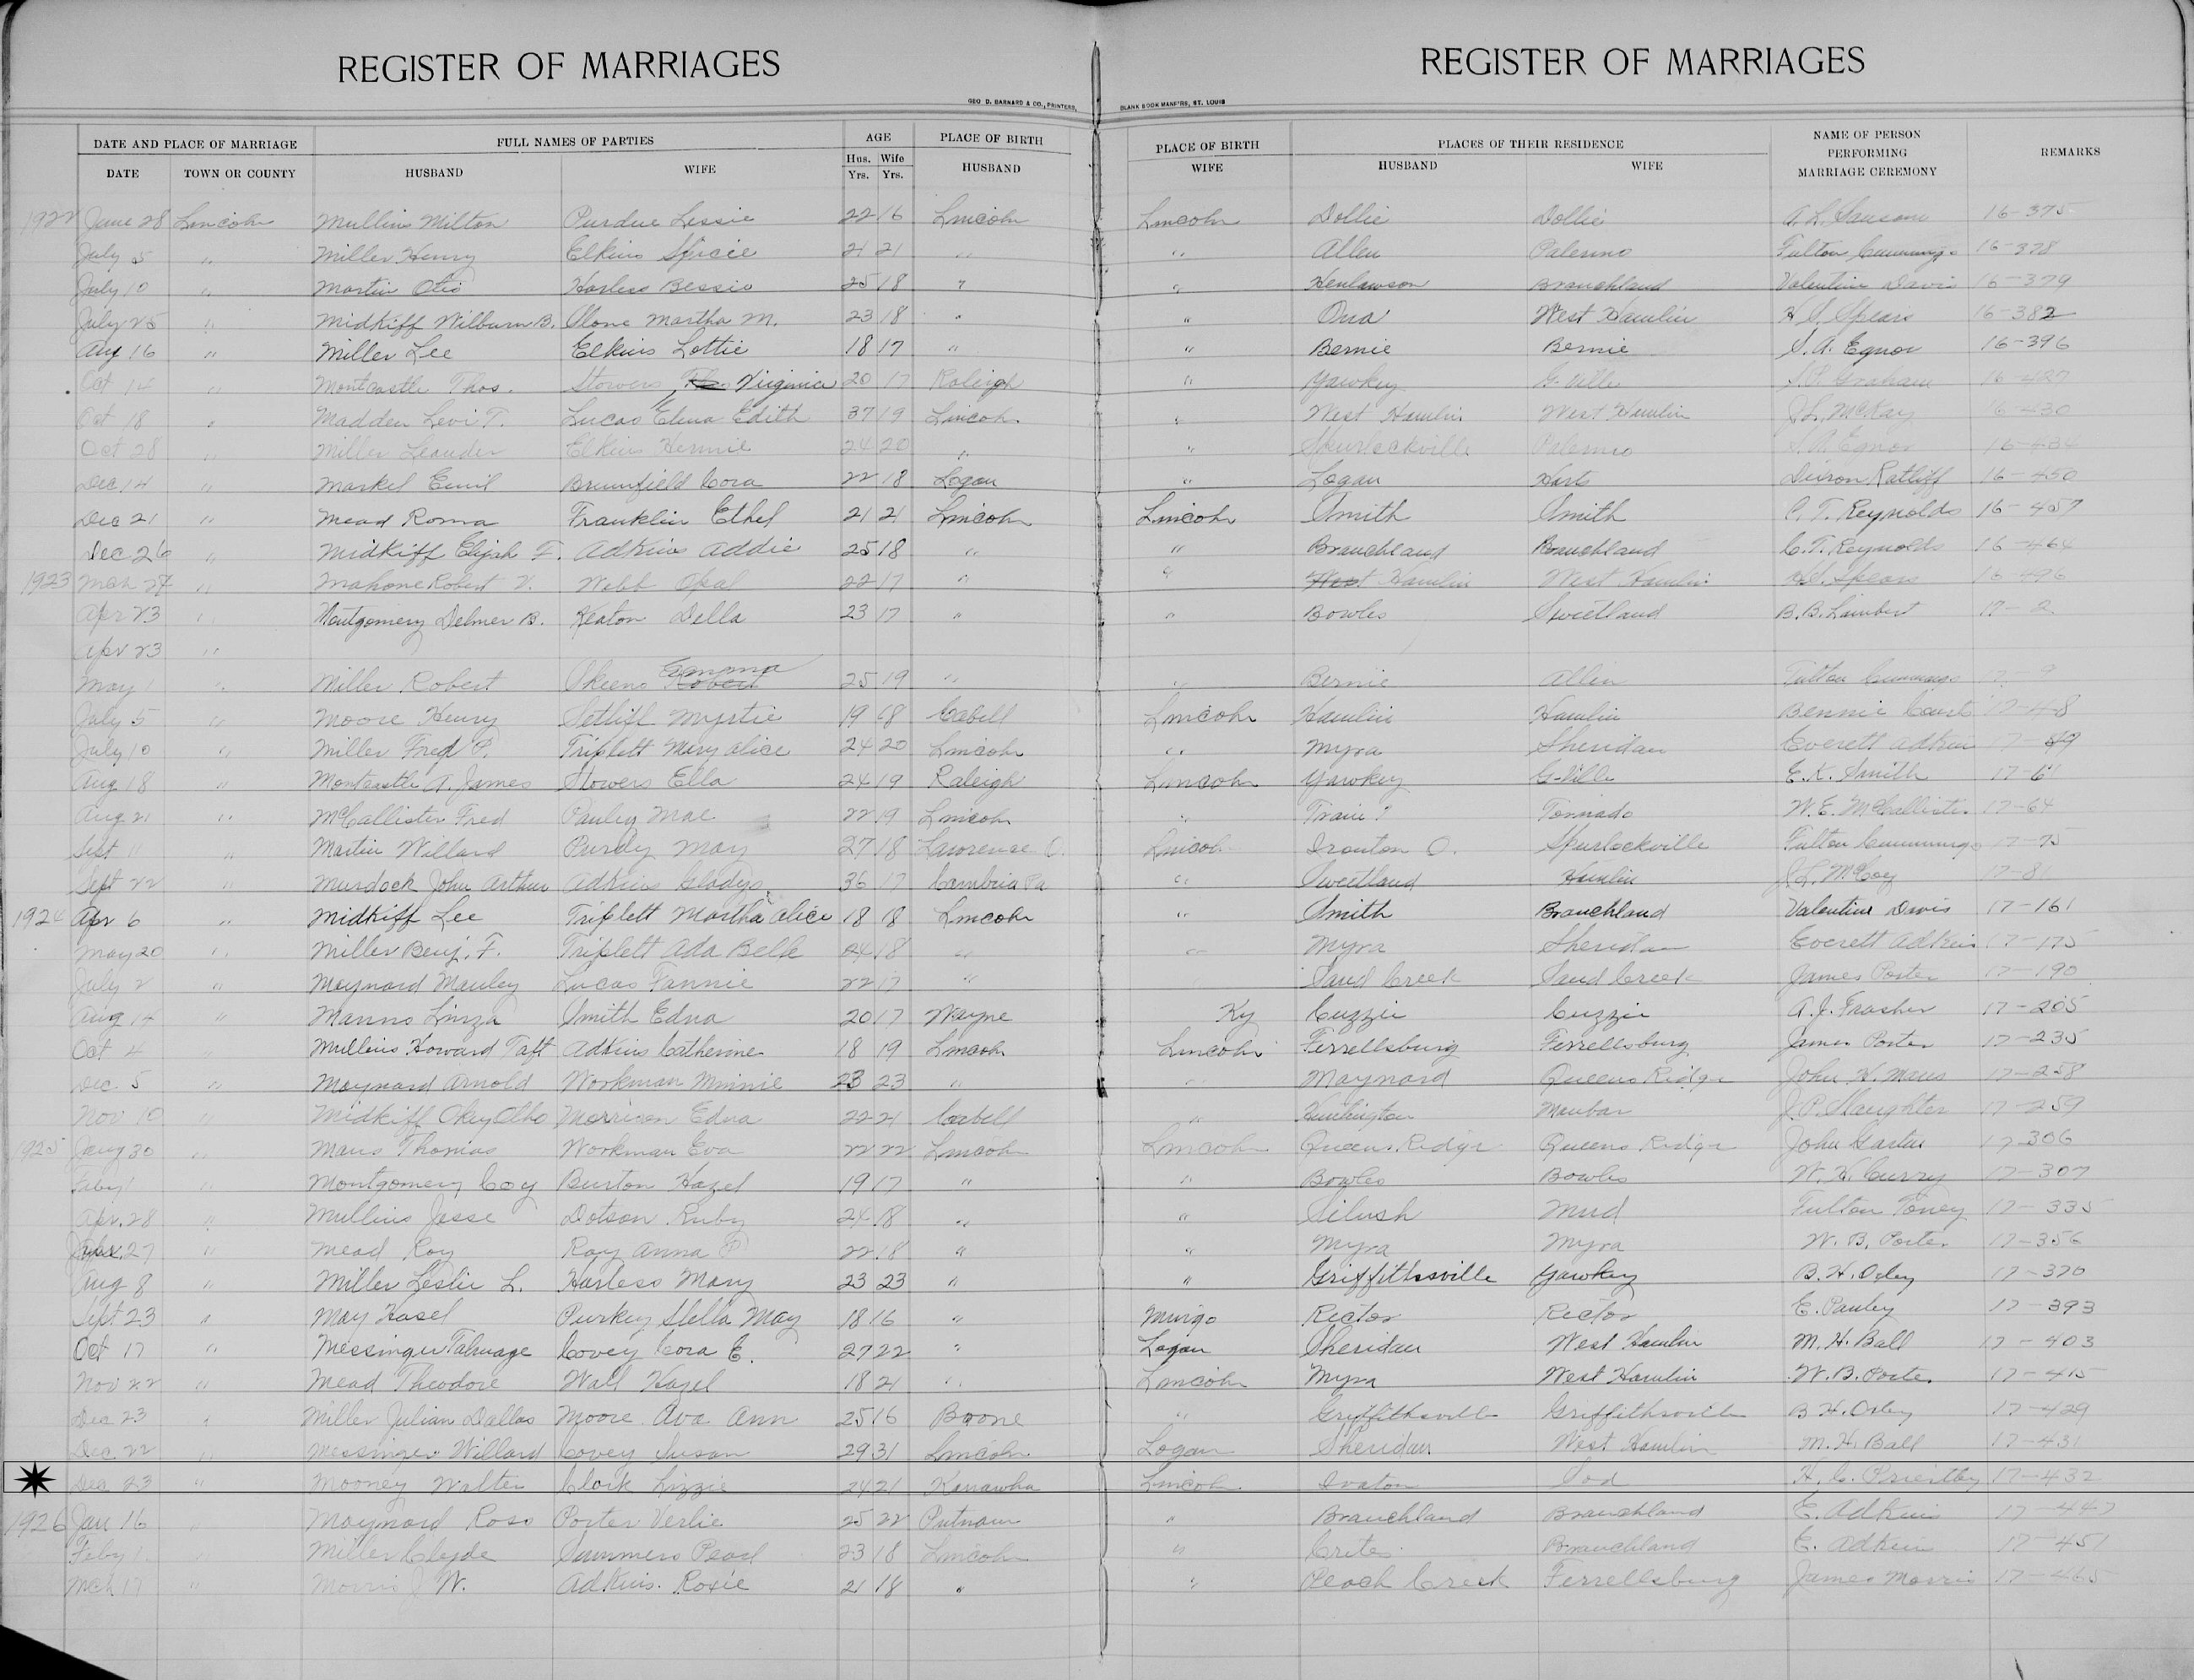 REGISTER OF MARRIAGES REGISTER OF MARRIAGES
GEO D. BARNARD & CO., PRINTERS, BLANK BOOK MANF'RS, ST. LOUIS
DATE AND PLACE OF MARRIAGE FULL NAMES OF PARTIES AGE PLACE OF BIRTH PLACE OF BIRTH PLACES OF THEIR RESIDENCE NAME OF PERSON PERFORMING MARRIAGE CEREMONY REMARKS
DATE TOWN OR COUNTY HUSBAND WIFE Hus. Yrs. Wife Yrs. HUSBAND WIFE HUSBAND WIFE
1922 June 28 Lincoln Mullins Milton Purdue Lessie 22 16 Lincoln Lincoln Dollie Dollie A. L. Sansom 16-375
July 5 " Miller Henry Elkins Spicie 21 21 " " Allen Palermo Fulton Cummings 16-378
July 10 " Martin Otis Harless Bessie 25 18 " " Henlawson Branchland Valentine Davis 16-379
July 25 " Midkiff Wilburn B. Slone Martha M. 23 18 " " Ona West Hamlin H. S. Spears 16-382
Aug 16 " Miller Lee Elkins Lottie 18 17 " " Bernie Bernie S. A. Egnor 16-396
Oct 14 " Montcastle Thos. Stowers Virginia 20 17 Raleigh " Yawkey G. Ville Graham 16-427
Oct 18 " Madden Levi T. Lucas Elma Edith 37 19 Lincoln " West Hamlin West Hamlin J. L. McKay 16-430
Oct 28 " Miller Leander Elkins Hennie 24 20 " " Spurlockville Palermo S. A. Egnor 16-434
Dec 14 " Markel Emil Brumfield Cora 22 18 Logan " Logan Harts Ratliff 16-450
Dec 21 " Mead Roma Franklin Ethel 21 21 Lincoln Lincoln Smith Smith C. T. Reynolds 16-457
Dec 26 " Midkiff Elijah F. Adkins Addie 25 18 " " Branchland Branchland C. T. Reynolds 16-464
1923 Mch 24 " Mahone Robert V. Webb Opal 22 17 " " West Hamlin West Hamlin H. S. Spears 16-496
Apr 23 " Montgomery Delmer B. Keaton Della 23 17 " " Bowles Sweetland B. B. Lambert 17-2
Apr 23 "
May 1 " Miller Robert Skeens Robert Emma 25 19 " " Bernie Allen Fulton Cummings 17-9
July 5 " Moore Henry Setliff Myrtie 19 18 Cabell Lincoln Hamlin Hamlin Bennie 17-48
July 10 " Miller Fred P. Triplett Mary Alice 24 20 Lincoln " Myra Sheridan Everett Adkins 17-49
Aug 18 " Montcastle A. James Stowers Ella 24 19 Raleigh Lincoln Yawkey G-Ville E. K. Smith 17-61
Aug 21 " McCallister Fred Pauley Mae 22 19 Lincoln " Tornado W. E. McCallister 17-64
Sept 11 " Martin Willard Purdy May 27 18 Lawrence O. Lincoln Ironton O. Spurlockville Fulton Cummings 17-75
Sept 22 " Murdock John Arthur Adkins Gladys 36 17 Cambria Pa " Sweetland Hamlin J. L. McCoy 17-81
1924 Apr 6 " Midkiff Lee Triplett Martha Alice 18 18 Lincoln " Smith Branchland Valentine Davis 17-161
May 20 " Miller Benj. F. Triplett Ada Belle 24 18 " " Myra Sheridan Everett Adkins 17-175
July 2 " Maynard Manley Lucas Fannie 22 17 " Sand Creek Sand Creek James Porter 17-190
Aug 14 " Manns Linza Smith Edna 20 17 Wayne Ky Cuzzie Cuzzie A. J. Frasher 17-205
Oct 4 " Mullins Howard Taft Adkins Catherine 18 19 Lincoln Lincoln Ferrellsburg Ferrellsburg James Porter 17-235
Dec 5 " Maynard Arnold Workman Minnie 23 23 " " Maynard Queens Ridge John H. Mans 17-258
Nov 10 " Midkiff Okey Otho Morrison Edna 22 21 Cabell " Huntington Manbar J. P. Slaughter 17-259
1925 Jany 30 " Mans Thomas Workman Eva 22 22 Lincoln Lincoln Queens Ridge Queens Ridge John 17-306
Feby 1 " Montgomery Coy Burton Hazel 19 17 " " Bowles Bowles W. H. Curry 17-307
Apr. 28 " Mullins Jesse Dotson Ruby 24 18 " " Silush Mud Fulton Toney 17-335
27 " Mead Roy Ray Anna 22 18 " " Myra Myra W. B. Porter 17-356
Aug 8 " Miller Leslie L. Harless Mary 23 23 " " Griffithsville Yawkey B. H. Oxley 17-370
Sept 23 " May Hasel Purkey Stella May 18 16 " Mingo Rector Rector E. Pauley 17-393
Oct 17 " Messinger Talmage Covey Cora E. 27 22 " Logan Sheridan West Hamlin M. H. Ball 17-403
Nov 22 " Mead Theodore Wall Hazel 18 21 " Lincoln Myra West Hamlin W. B. Porter 17-415
Dec 23 " Miller Julian Dallas Moore Ava Ann 25 16 Boone " Griffithsville Griffithsville B. H. Oxley 17-429
Dec 22 " Messinger Willard Covey Susan 29 31 Lincoln Logan Sheridan West Hamlin M. H. Ball 17-431
Dec 23 " Mooney Walter Clark Lizzie 24 21 Kanawha Lincoln Ivaton Sod H. C. Priestley 17-432
1926 Jan 16 " Maynard Ross Porter Verlie 25 22 Putnam " Branchland Branchland E. Adkins 17-447
Feby 1 " Miller Clyde Summers Pearl 23 18 Lincoln " Crites Branchland E. Adkins 17-451
Mch 17 " Morris J W. Adkins Roxie 21 18 " " Peach Creek Ferrellsburg James Morris 17-465